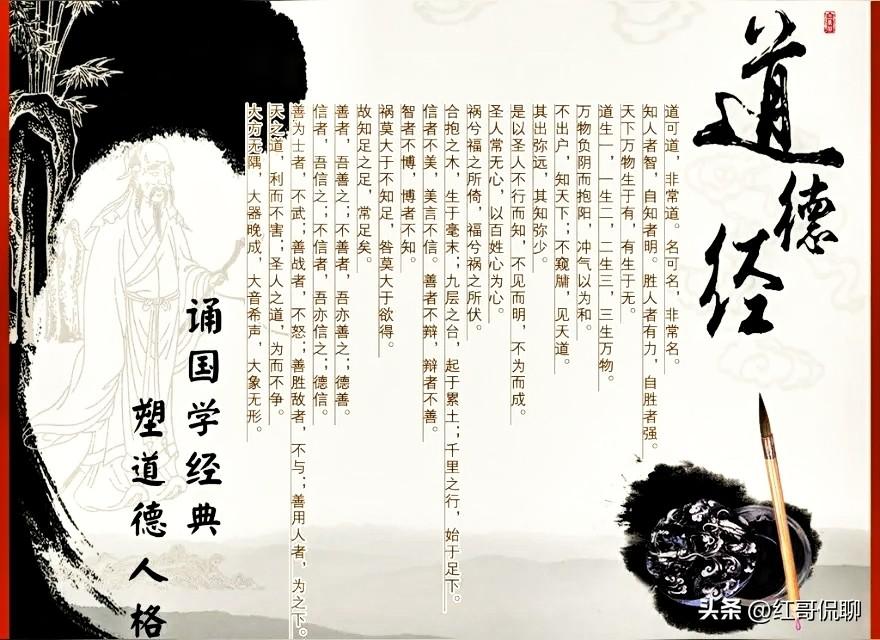 道德经
道可道，非常道。名可名，非常名。
知人者智，自知者明。胜人者有力，自胜者强。
天下万物生于有，有生于无。
道生一，一生二，二生三，三生万物。
万物负阴而抱阳，冲气以为和。
不出户，知天下；不窥牖，见天道。
其出弥远，其知弥少。
是以圣人不行而知，不见而明，不为而成。
圣人常无心，以百姓心为心。
祸兮福之所倚，福兮祸之所伏。
合抱之木，生于毫末；九层之台，起于累土；千里之行，始于足下。
信者不美，美言不信。善者不辩，辩者不善。
智者不博，博者不知。
祸莫大于不知足，咎莫大于欲得。
故知足之足，常足矣。
善者，吾善之；不善者，吾亦善之；德善。
信者，吾信之；不信者，吾亦信之；德信。
善为士者，不武；善战者，不怒；善胜敌者，不与；善用人者，为之下。
天之道，利而不害；圣人之道，为而不争。
大方无隅，大器晚成，大音希声，大象无形。
诵国学经典
塑道德人格
头条 @红哥侃聊